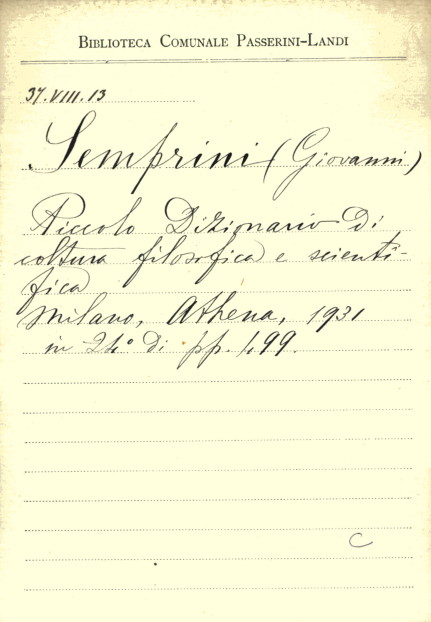 BIBLIOTECA COMUNALE PASSERINI-LANDI
37.VIII.13
Semprini (Giovanni)
Piccolo Dizionario di
coltura filosofica e scienti-
fica
Milano, Athena, 1931
in 24° di pp. 499.
C